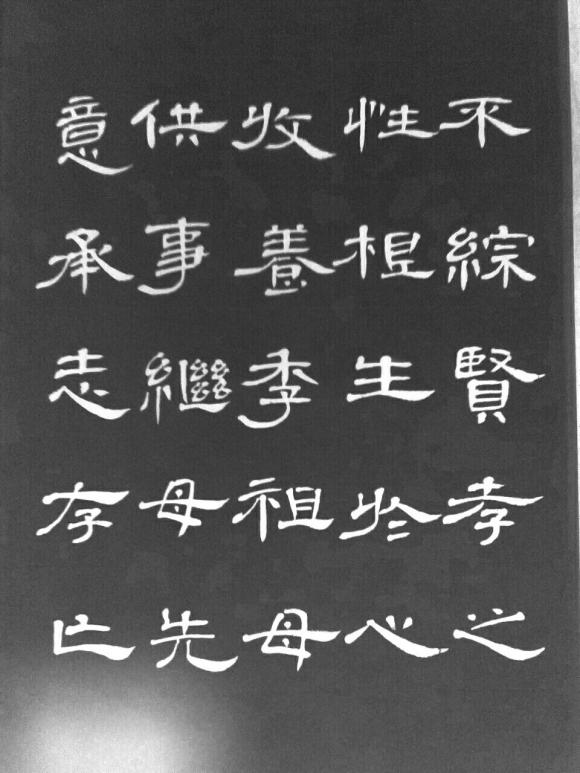 不綜賢孝之
性根生於心
收養季祖母
供事繼母先
意承志存亡